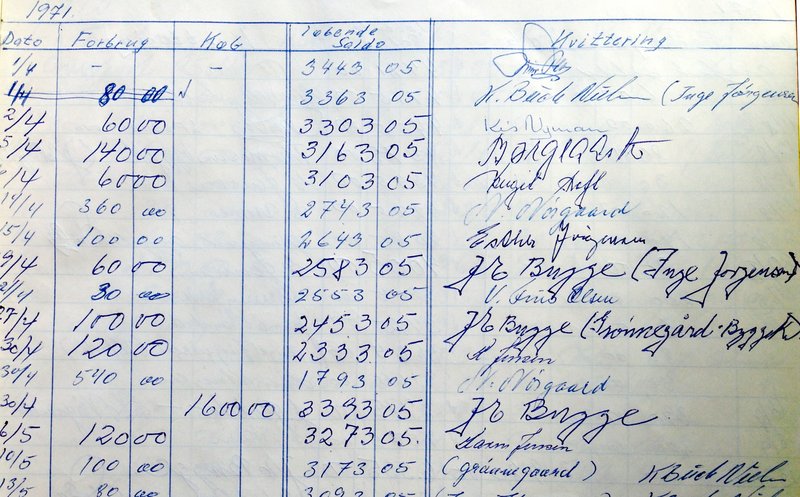 1971.
Dato Forbrug Køb Løbende Saldo Kvittering
1/4 – – 3443 05
1/4 80 00 √ 3363 05 K. Bück Nielsen (Inge Jørgensen
2/4 60 00 3303 05 Kis Nyman
5/4 140 00 3163 05
/4 60 00 3103 05
14/4 360 00 2743 05 N. Nörgaard
15/4 100 00 2643 05 Esther Jörgensen
9/4 60 00 2583 05 JE Bygge (Inge Jørgensen)
2/4 30 00 2553 05 Olsen
27/4 100 00 2453 05 JE Bygge (Grønnegård-
30/4 120 00 2333 05 Jensen
30/4 540 00 1793 05 N. Nörgaard
30/4 1600 00 3393 05 JE Bygge
6/5 120 00 3273 05. Karen Jensen
10/5 100 00 3173 05 (grønnegaard) K Bück Nielsen
13/5 80 00 3093 05